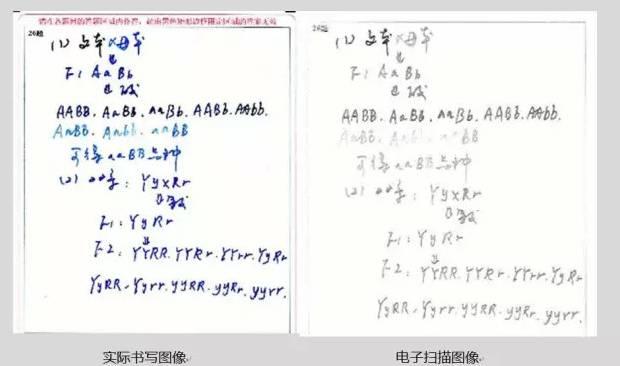 请在各题目的答题区域内作答，超出黑色矩形边框限定区域的答案无效
26题
(1) 父本×母本
F1 AaBb
AABB. AaBB. aaBb. AABb. AAbb.
AaBb. Aabb. aaBB
可得aaBB品种
(2) : YyxRr
F1: YyRr
F2: YYRR. YYRr. YYrr. YyRr
YyRR. Yyrr. yyRR. yyRr. yyrr.
实际书写图像.
26题
(1) 父本×母本
F1 AaBb
AABB. AaBB. aaBb. AABb. AAbb.
AaBb. Aabb. aaBB
可得aaBB品种
(2) : YyxRr
F1: YyRr
F2: YYRR. YYRr. YYrr. YyRr
YyRR. Yyrr. yyRR. yyRr. yyrr.
电子扫描图像.